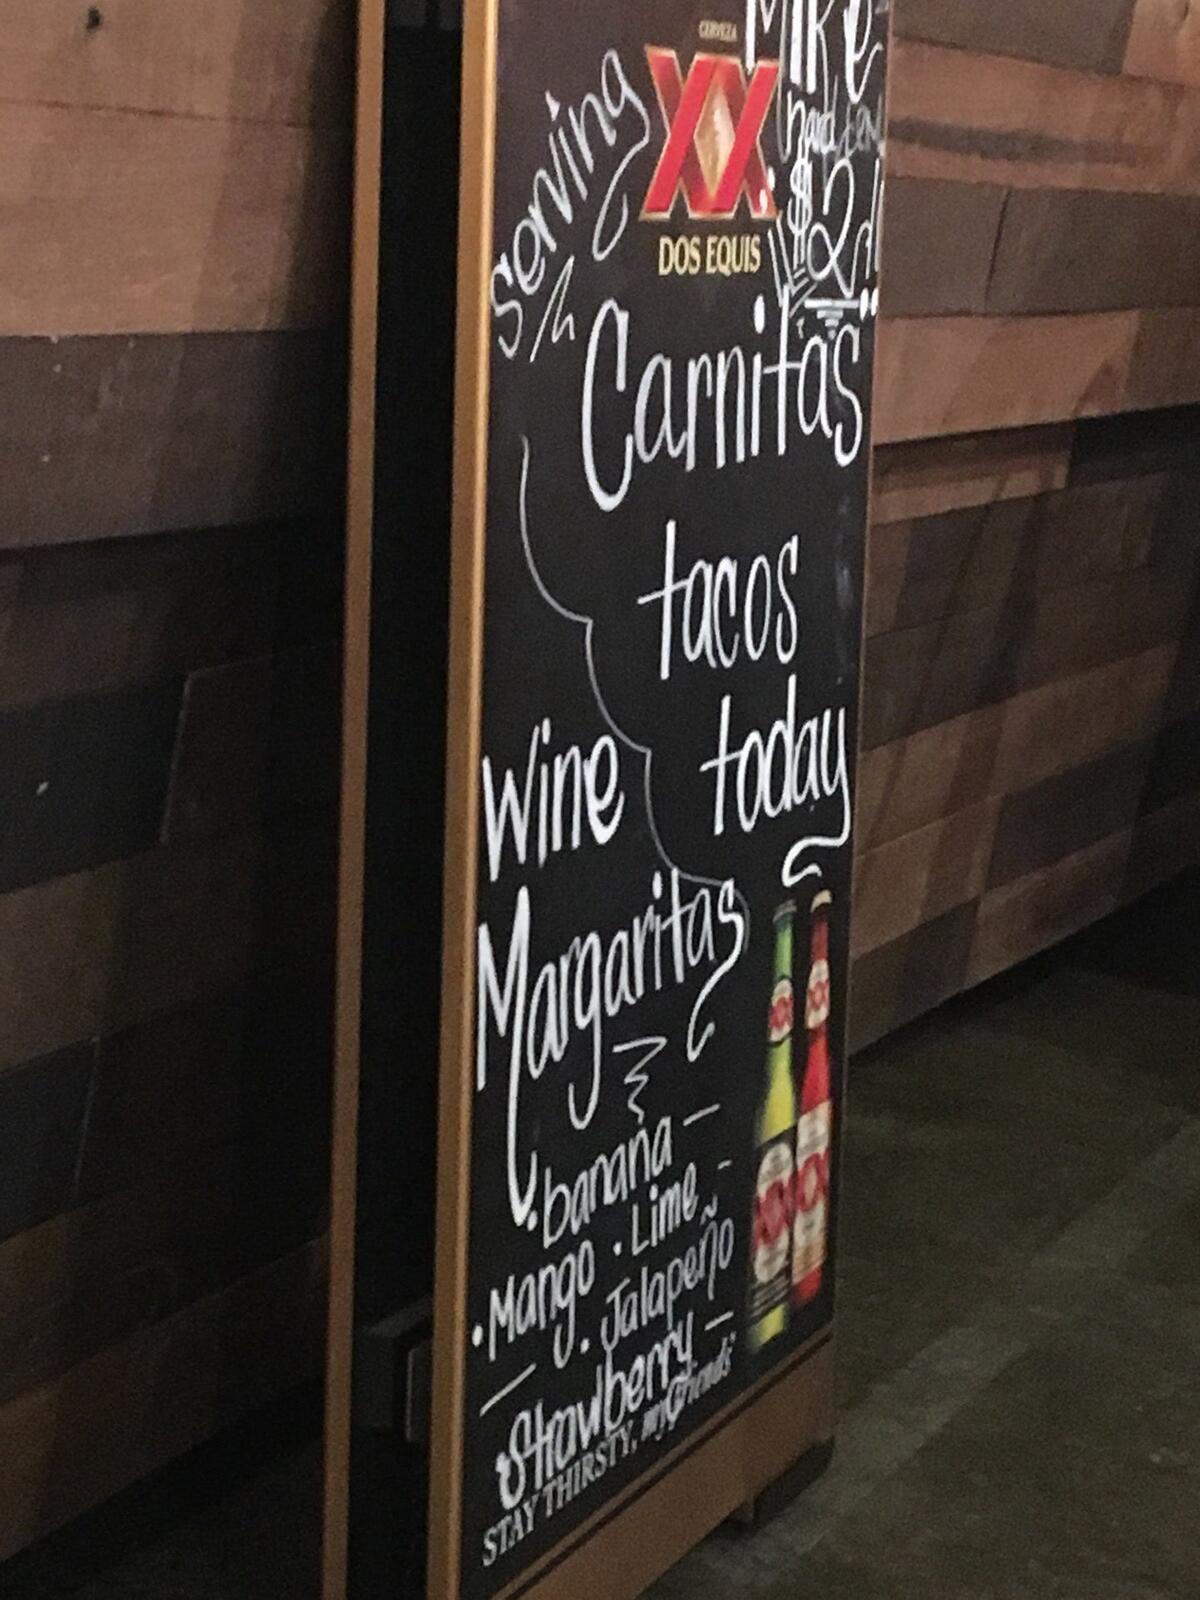 Mike
CERVEZA
XX
hard
Serving
$2
DOS EQUIS
Carnitas
tacos
today
Wine
Margaritas
banana
• Mango • Lime
• Jalapeño
• Strawberry
STAY THIRSTY, my friends